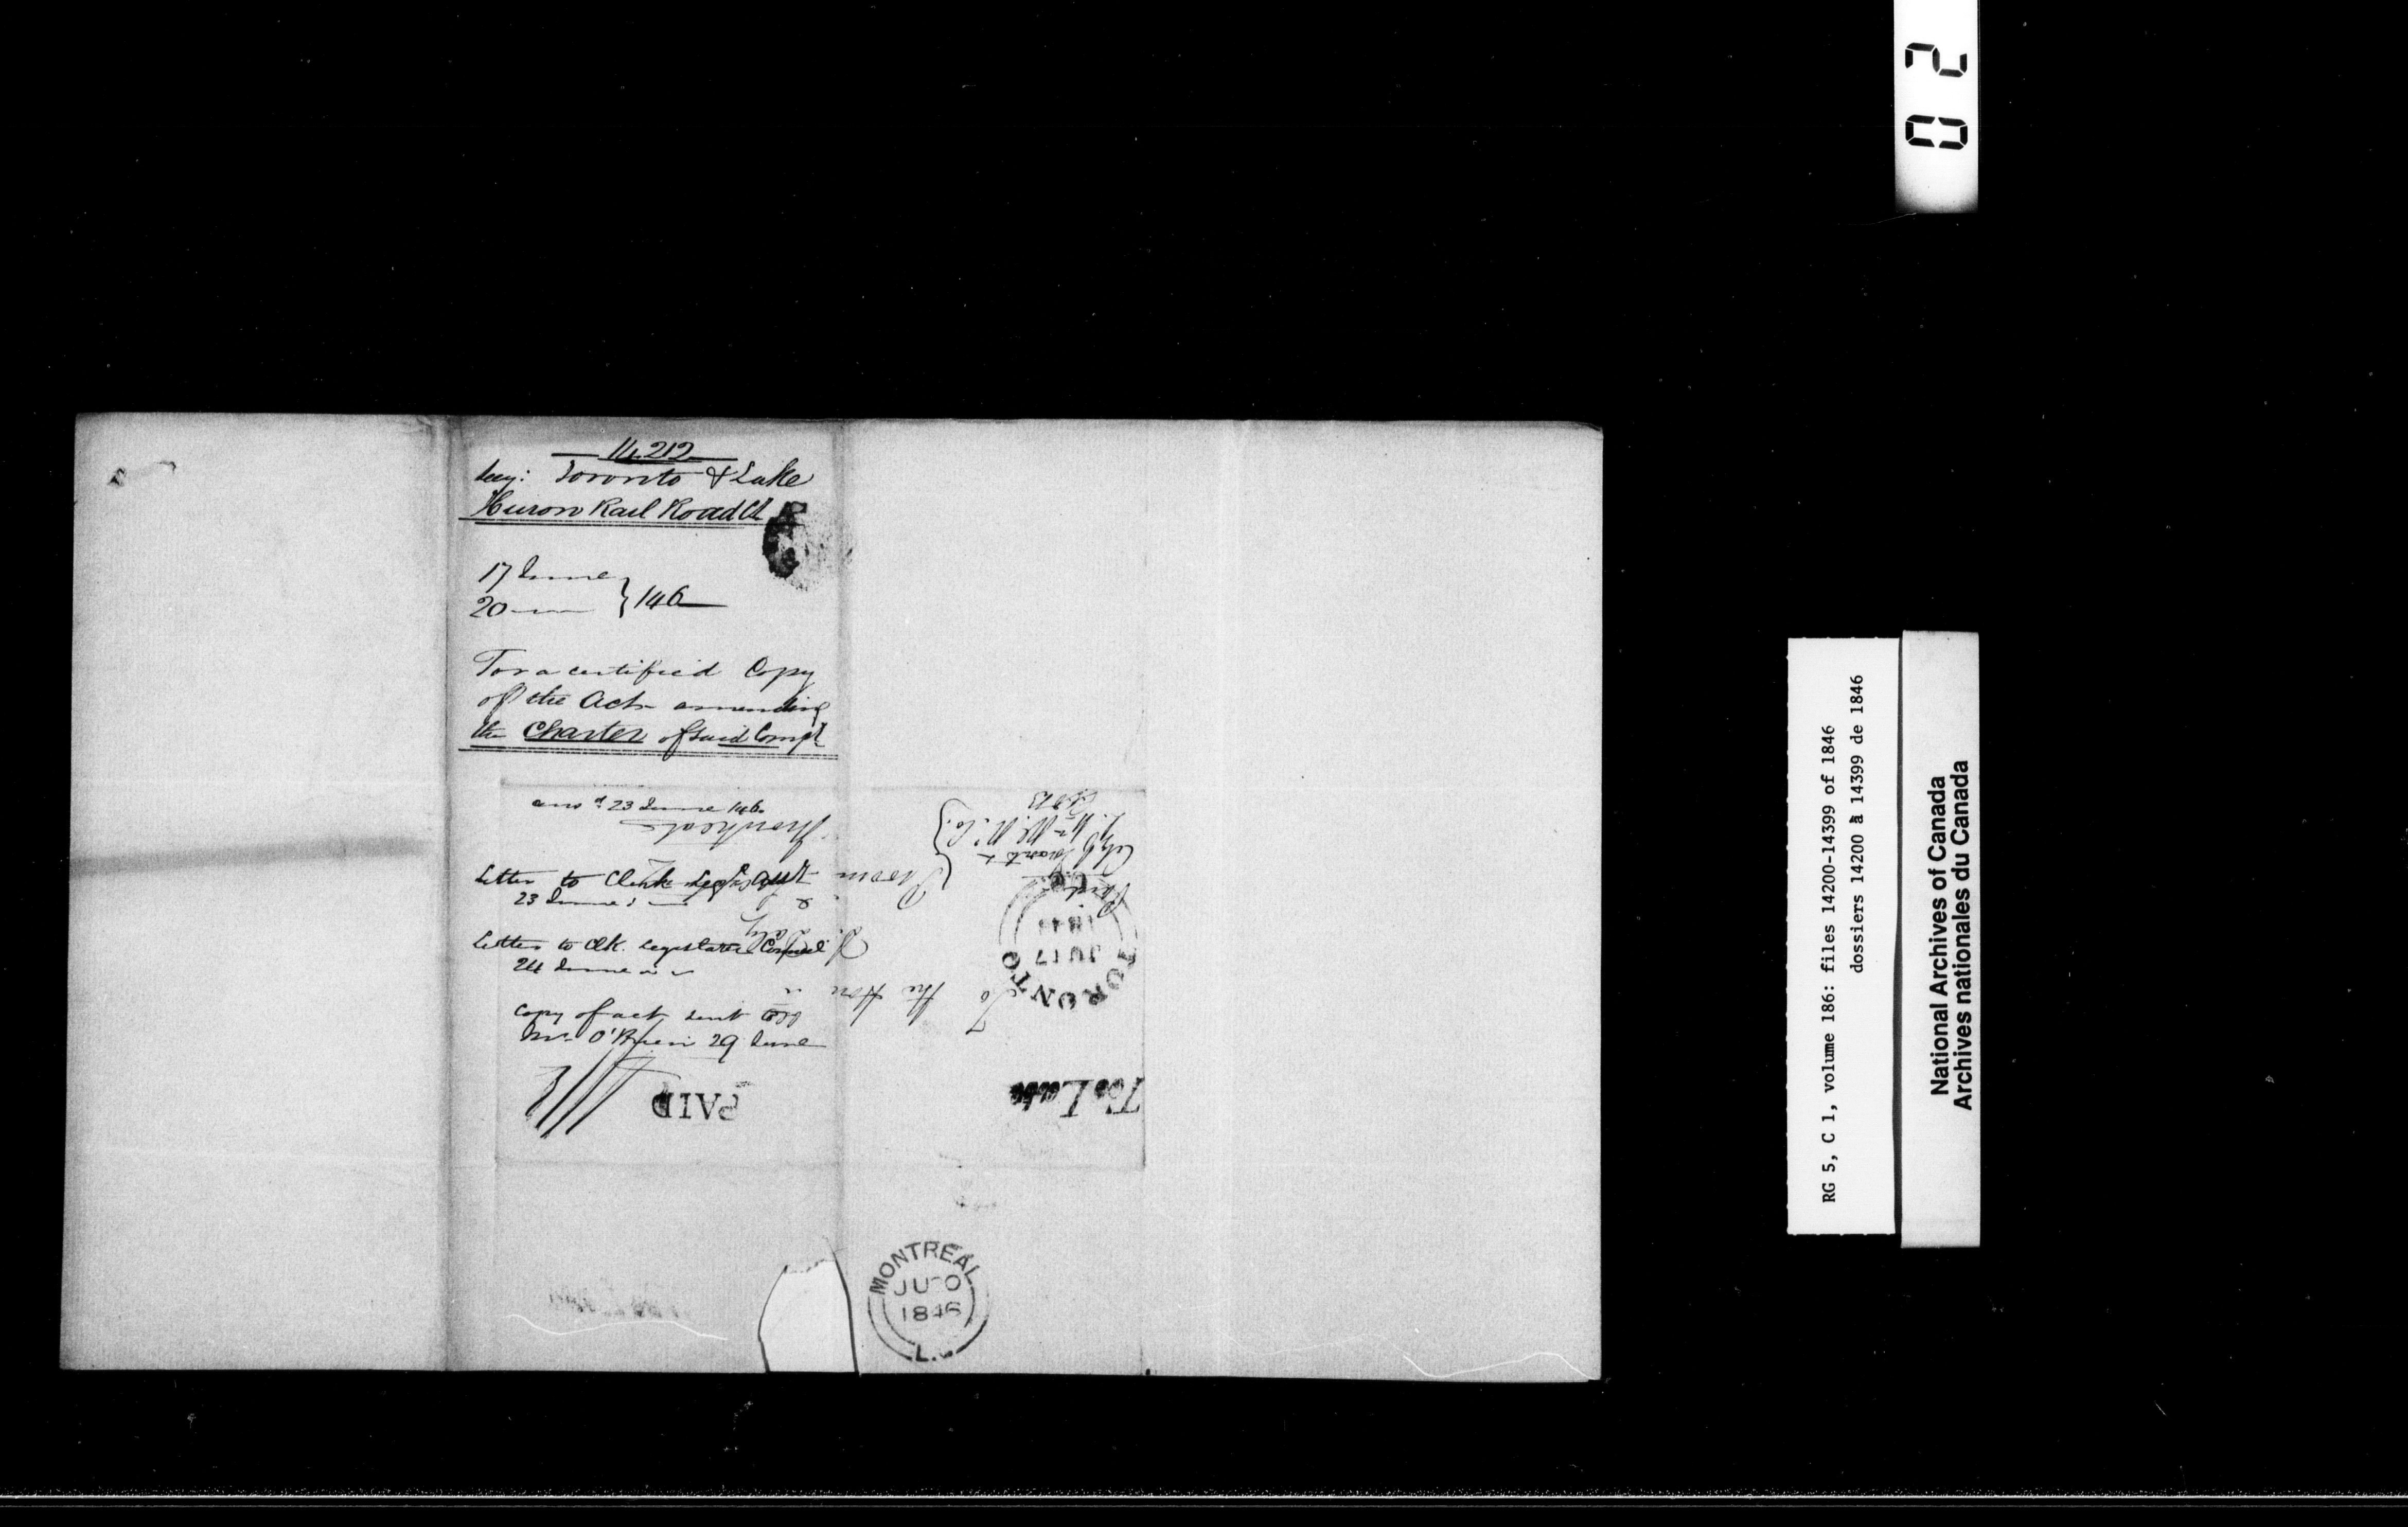 14.212
Secy: Toronto & Lake
Huron Rail Road Co
17 June
20 — } 146
For a certified Copy
of the Act amending
the Charter of said Compy
ansd 23 June 146.
Letter to Clerk
23 June
Letter to Clk. Legislative Council
24 June
Copy of act sent to
Mr. O'Brien 29 June
PAID
Montreal
To the Hon
D. Daly
Too Late
TORONTO
JU 17
184
MONTREAL
JU 0
1846
L.
02
RG 5, C 1, volume 186: files 14200-14399 of 1846
dossiers 14200 à 14399 de 1846
National Archives of Canada
Archives nationales du Canada